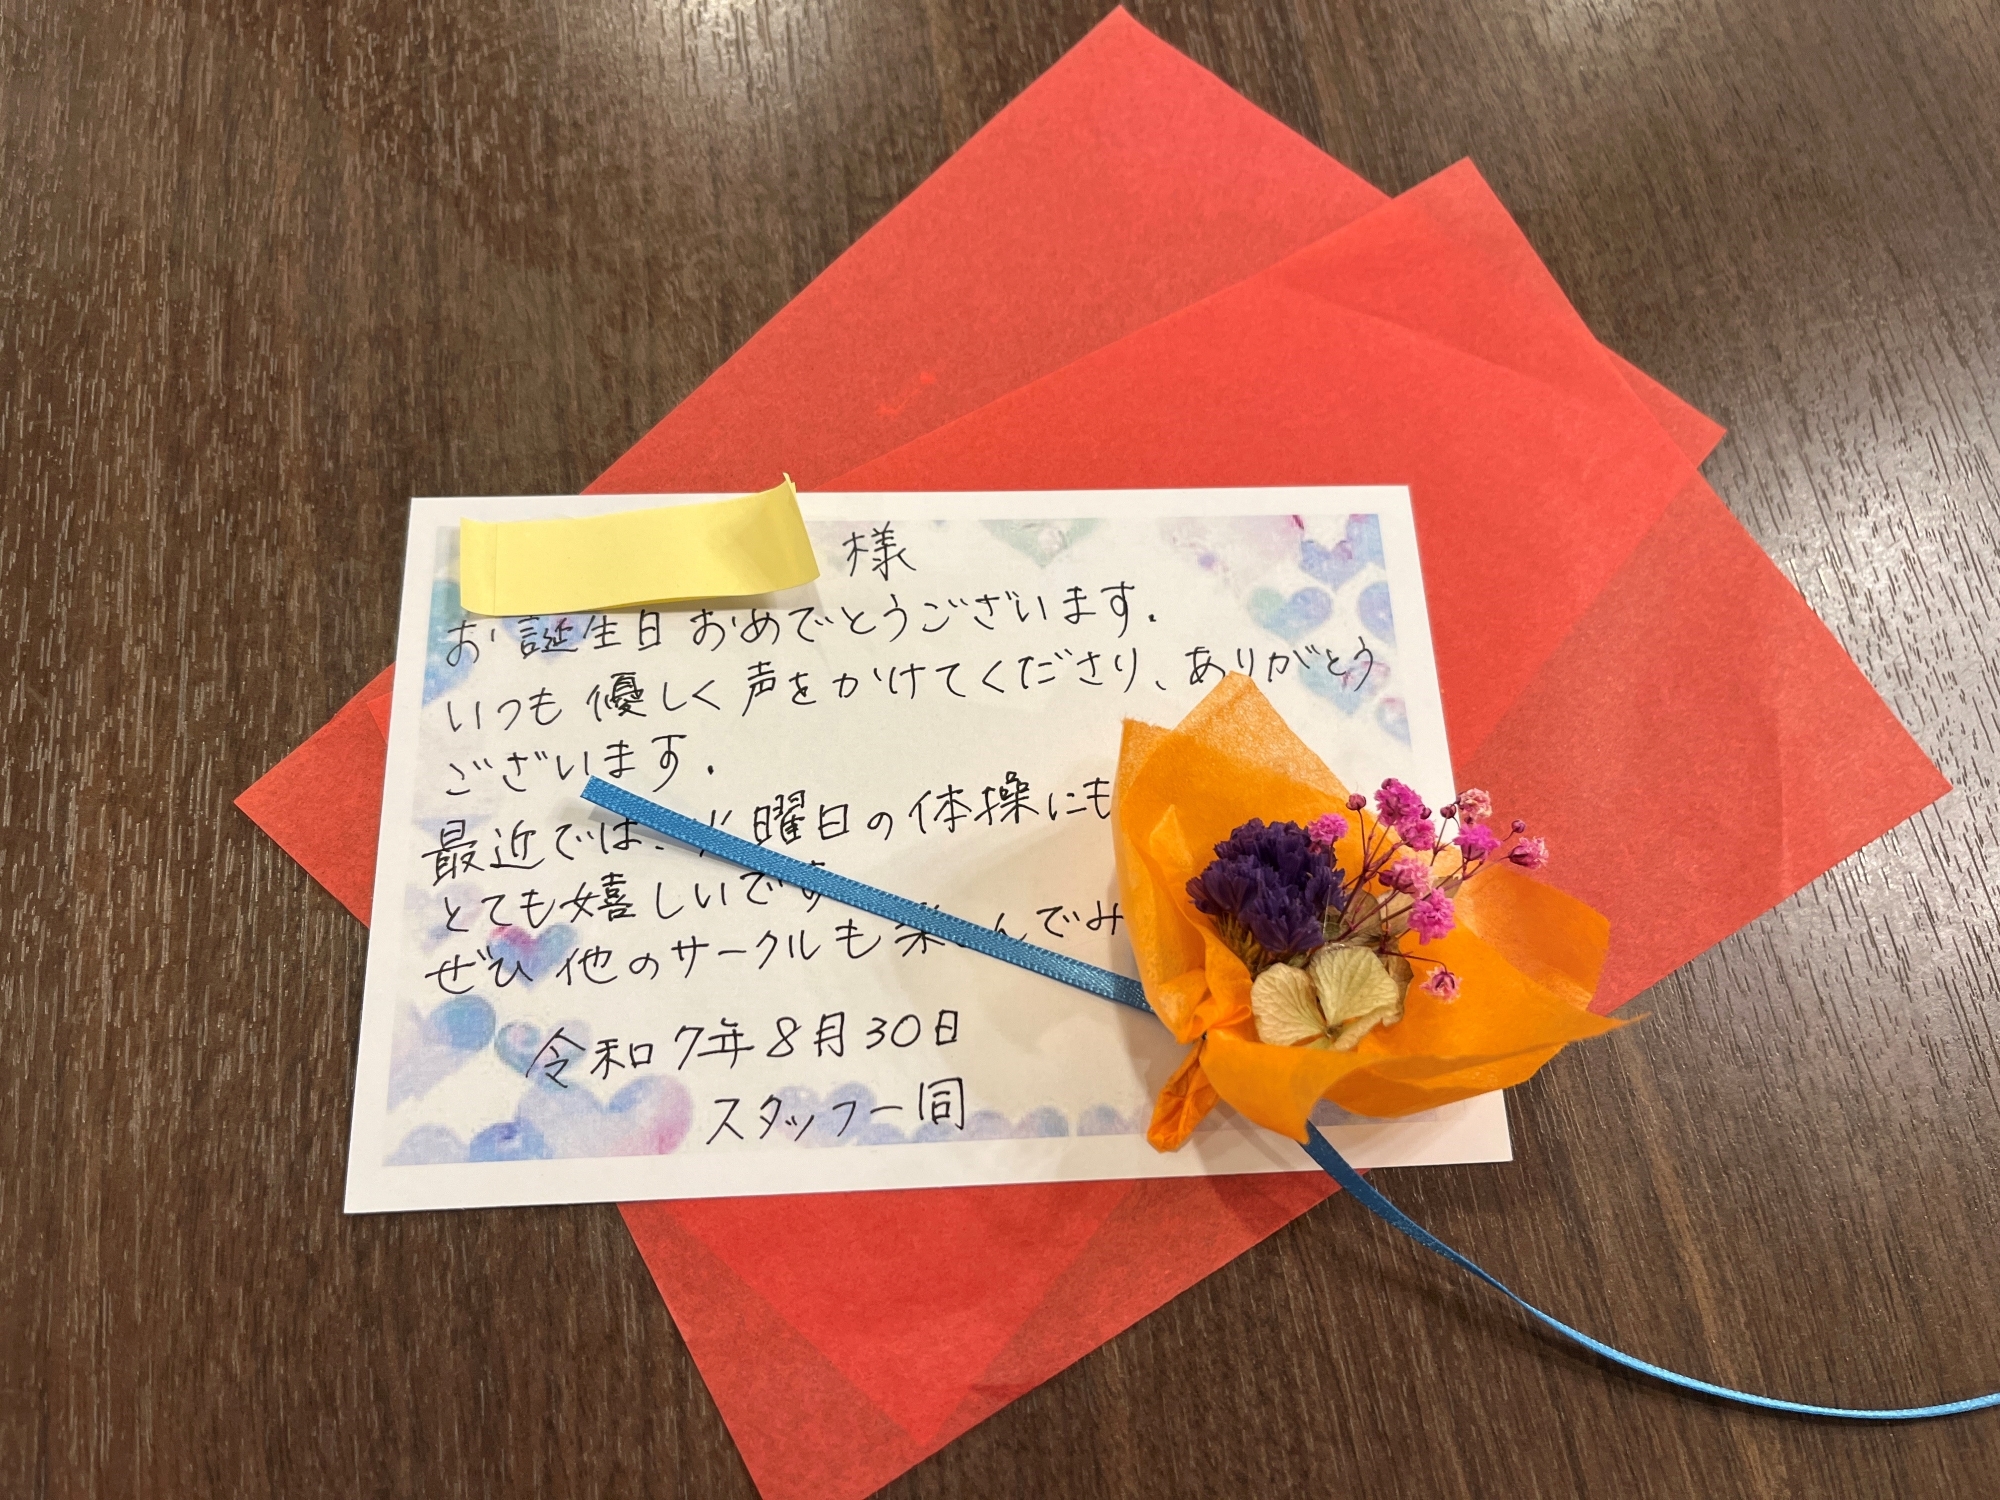 様
お誕生日おめでとうございます.
いつも優しく声をかけてくださり、ありがとう
ございます.
最近では、 曜日の体操にも
とても嬉しいです
ぜひ他のサークルも楽しんでみ
令和7年8月30日
スタッフ一同